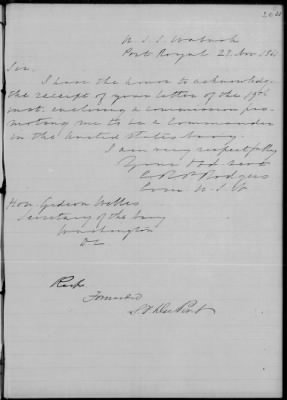 U.S.S. Wabash
Port Royal 27 Nov. 1861
Sir.
I have the honor to acknowledge
the receipt of your letter of the 19th
inst. enclosing a commission pro-
moting me to be a Commander
in the United States Navy.
I am very respectfully
Your Obd servt
C R P Rodgers
Com U.S.N
Hon Gideon Welles
Secretary of the Navy
Washington
DC
Forwarded
S F DuPont